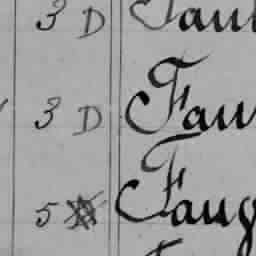 3 D Faul
3 D Fau
5 Faug